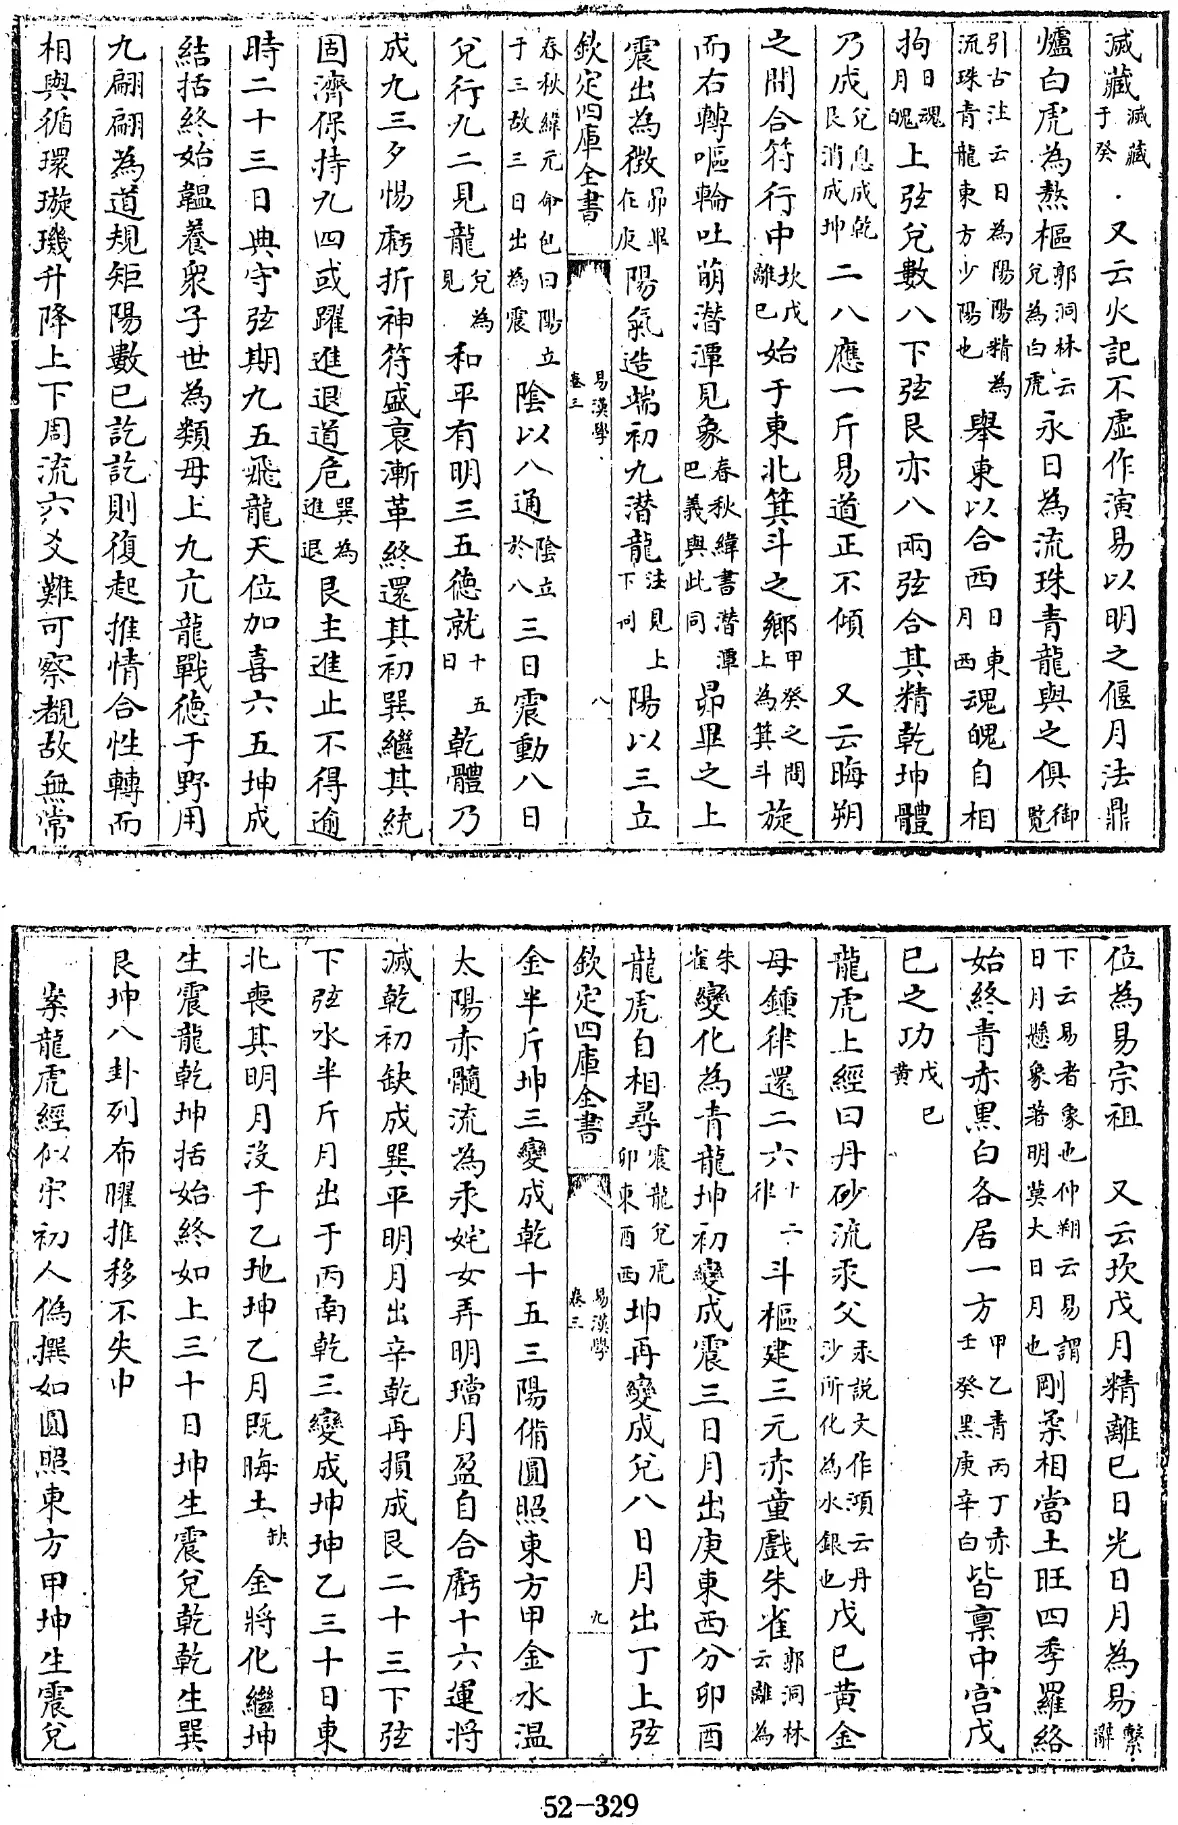 滅藏滅藏于癸 又云火記不虛作演易以明之偃月法鼎
爐白虎為熬樞郭洞林云兌為白虎永日為流珠青龍與之俱御覽
引古注云日為陽陽精為流珠青龍東方少陽也舉東以合西日東月西魂魄自相
拘日魂月魄上弦兌數八下弦艮亦八兩弦合其精乾坤體
乃成兌息成乾艮消成坤二八應一斤易道正不傾 又云晦朔
之間合符行中坎戊離巳始于東北箕斗之鄉甲癸之間上為箕斗旋
而右轉嘔輪吐萌潛潭見象春秋緯書潛潭巴義與此同昴畢之上
震出為徵昴畢在庚陽氣造端初九潛龍注見上下同陽以三立
欽定四庫全書 易漢學 卷三 八
春秋緯元命包曰陽立于三故三日出為震陰以八通陰立於八三日震動八日
兌行九二見龍兌為見和平有明三五德就十五日乾體乃
成九三夕惕虧折神符盛衰漸革終還其初巽繼其統
固濟保持九四或躍進退道危巽為進退艮主進止不得逾
時二十三日典守弦期九五飛龍天位加喜六五坤成
結括終始韞養衆子世為類母上九亢龍戰德于野用
九翩翩為道規矩陽數已訖訖則復起推情合性轉而
相與循環璇璣升降上下周流六爻難可察覩故無常
位為易宗祖 又云坎戊月精離巳日光日月為易繫辭
下云易者象也仲翔云易謂日月懸象著明莫大日月也剛柔相當土旺四季羅絡
始終青赤黑白各居一方甲乙青丙丁赤壬癸黑庚辛白皆禀中宮戊
巳之功戊巳黄
龍虎上經曰丹砂流汞父汞說文作澒云丹沙所化為水銀也戊巳黄金
母鍾律還二六十二律斗樞建三元赤童戲朱雀郭洞林云離為
朱雀變化為青龍坤初變成震三日月出庚東西分卯酉
龍虎自相尋震龍兌虎卯東酉西坤再變成兌八日月出丁上弦
欽定四庫全書 易漢學 卷三 九
金半斤坤三變成乾十五三陽備圓照東方甲金水温
太陽赤髓流為汞姹女弄明璫月盈自合虧十六運將
滅乾初缺成巽平明月出辛乾再損成艮二十三下弦
下弦水半斤月出于丙南乾三變成坤坤乙三十日東
北喪其明月沒于乙地坤乙月既晦土缺 金將化繼坤
生震龍乾坤括始終如上三十日坤生震兌乾乾生巽
艮坤八卦列布曜推移不失中
案龍虎經似宋初人偽撰如圓照東方甲坤生震兌
52-329